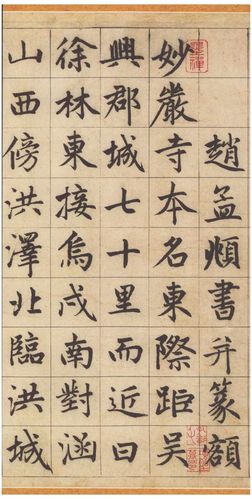 趙孟頫書并篆額
妙嚴寺本名東際距吳
興郡城七十里而近曰
徐林東接烏戍南對涵
山西傍洪澤北臨洪城